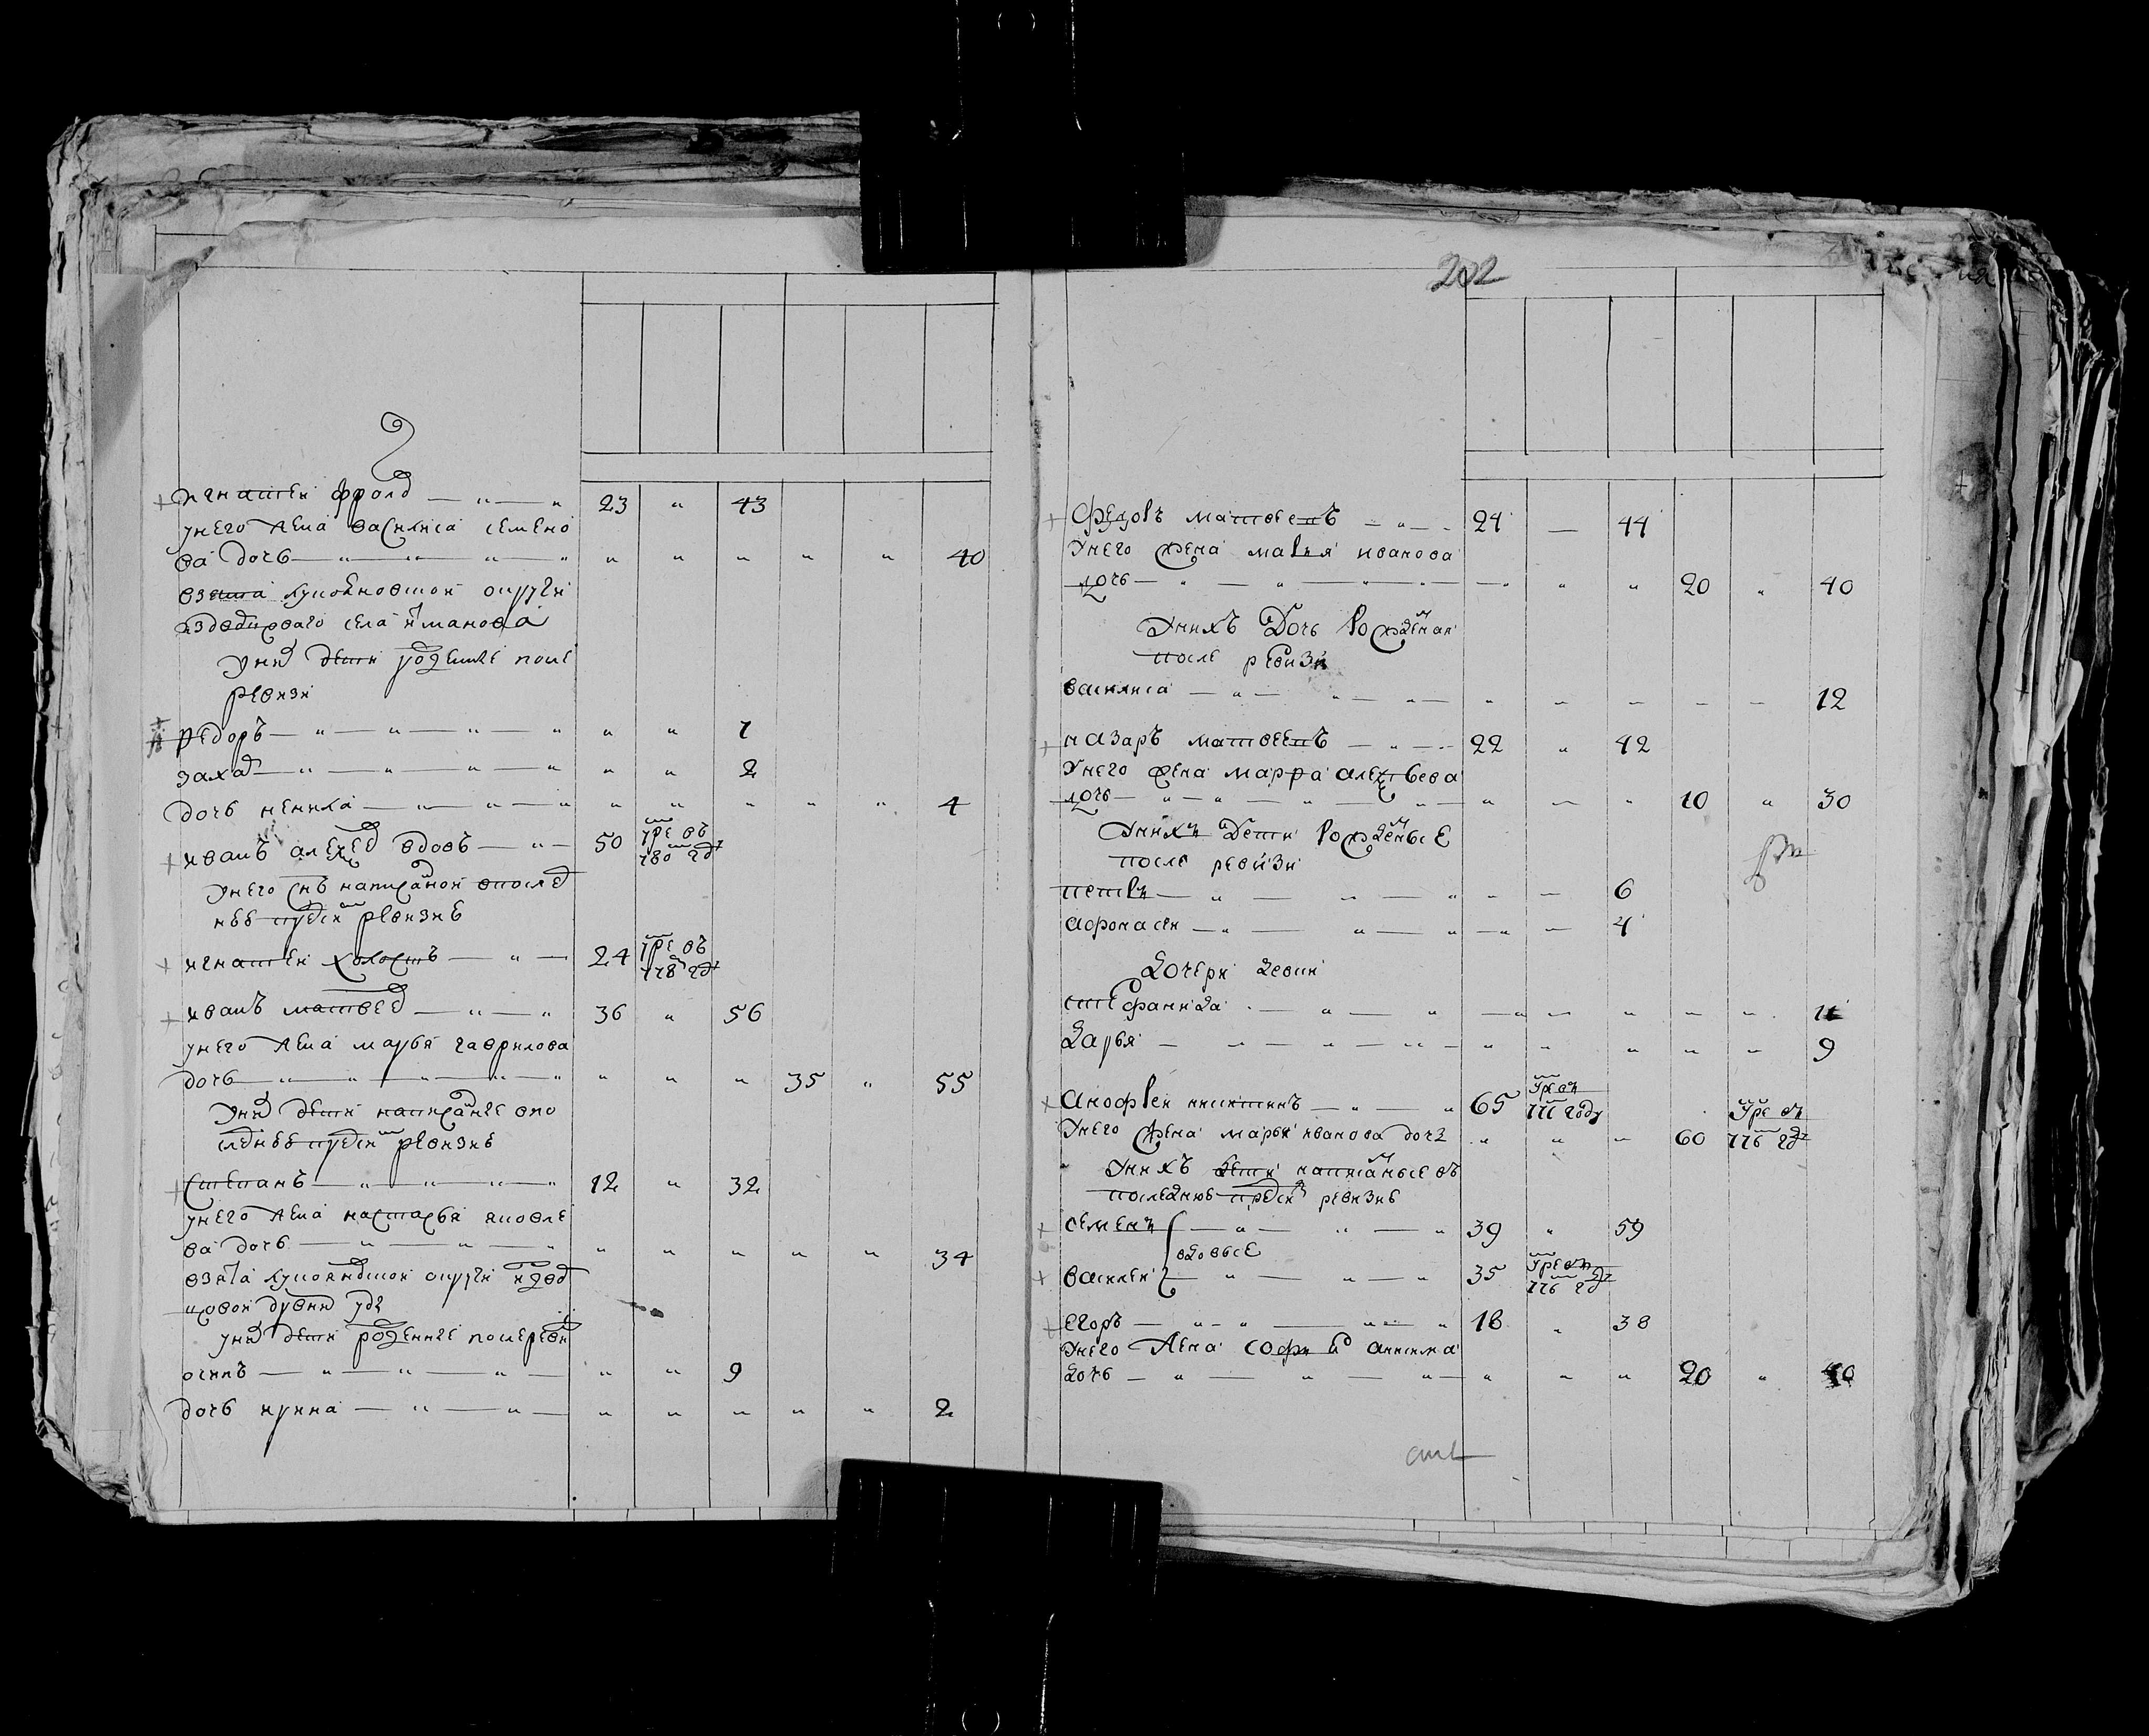 игнатеи фролᲂв 23 " 43
унего жена василиса семено
ва дочь " " " " " 40
взята лукояновской округи
уних дети рожденые после
ревизи
федоръ " " 1
заха " " 2
дочь ненила " " " " " 4
иванъ алексеев вдовъ 50 умре въ 780м году
унего снъ написаной впослед
неи пред сим ревизие
игнатеи холостъ 24 умре въ 778 году
иванъ матвеев 36 " 56
унего жена марья гаврилова
дочь " " " 35 " 55
уних дети написаные впо
следнеи пред сим ревизие
степанъ 12 " 32
унего жена настасья яковле
ва дочь " " " " " 34
взята лукояновской округи
уних дети рожденные после реви
осипъ " " 9
дочь ирина " " " " " 2
202
Федоръ матвеевъ 24 — 44
Унего жена марья иванова
дочь " " " 20 " 40
Унихъ дочь рожденая
после ревизи
василиса " " " " " 12
назаръ матвеевъ 22 " 42
Унего жена марфа алексеева
дочь " " " 10 " 30
Унихъ дети рожденые
после ревизи
петръ " " 6
афонасеи " " 4
Дочери девки
степанида " " " " " 11
Дарья " " " " " 9
Анофреи никитинъ 65 Умре въ 776 году
Унего жена марья иванова дочь " " " 60 Умре въ 776 году
Унихъ дети написаные въ
последнюю пред сим ревизие
семенъ 39 " 59
вдовые
василеи 35 Умре въ 776 году
егоръ 18 " 38
Унего жена софья анисима
дочь " " " 20 " 40